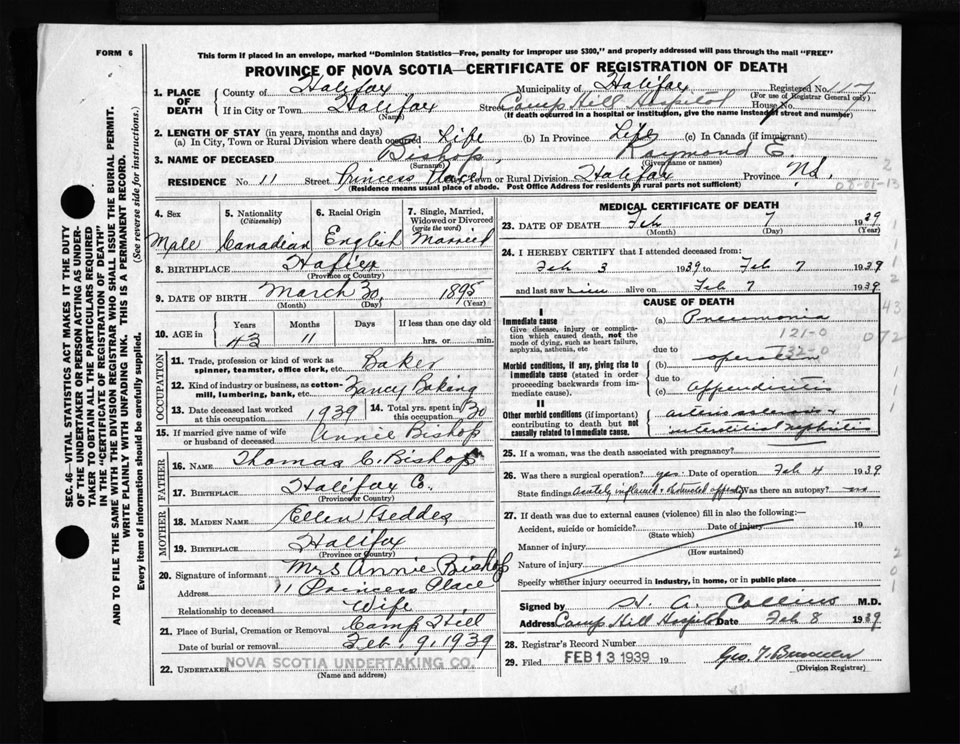 FORM 6
This form if placed in an envelope, marked "Dominion Statistics—Free, penalty for improper use $300," and properly addressed will pass through the mail "FREE"
PROVINCE OF NOVA SCOTIA—CERTIFICATE OF REGISTRATION OF DEATH
1. PLACE OF DEATH
County of Halifax Municipality of Halifax Registered No. 117
(For use of Registrar General only)
If in City or Town Halifax Street Camp Hill Hospital House No.
(Name) (If death occurred in a hospital or institution, give the name instead of street and number)
2. LENGTH OF STAY (in years, months and days)
(a) In City, Town or Rural Division where death occurred Life (b) In Province Life (c) In Canada (if immigrant)
3. NAME OF DECEASED Bishop, Raymond E.
(Surname) (Given name or names)
RESIDENCE No. 11 Street Princess Place Town or Rural Division Halifax Province N.S.
(Residence means usual place of abode. Post Office Address for residents in rural parts not sufficient)
08-01-13
4. Sex Male
5. Nationality (Citizenship) Canadian
6. Racial Origin English
7. Single, Married, Widowed or Divorced (write the word) Married
8. BIRTHPLACE Halifax
(Province or Country)
9. DATE OF BIRTH March 30, 1895
(Month) (Day) (Year)
10. AGE in Years Months Days If less than one day old
43 11 hrs. or min.
OCCUPATION
11. Trade, profession or kind of work as spinner, teamster, office clerk, etc. Baker
12. Kind of industry or business, as cotton-mill, lumbering, bank, etc. Fancy Baking
13. Date deceased last worked at this occupation 1939
14. Total yrs. spent in this occupation 30
15. If married give name of wife or husband of deceased Annie Bishop
FATHER
16. NAME Thomas C. Bishop
17. BIRTHPLACE Halifax C.
(Province or Country)
MOTHER
18. MAIDEN NAME Ellen Geddes
19. BIRTHPLACE Halifax
(Province or Country)
20. Signature of informant Mrs Annie Bishop
Address 11 Princess Place
Relationship to deceased Wife
21. Place of Burial, Cremation or Removal Camp Hill
Date of burial or removal Feb. 9, 1939
22. UNDERTAKER NOVA SCOTIA UNDERTAKING CO.
(Name and address)
MEDICAL CERTIFICATE OF DEATH
23. DATE OF DEATH Feb 7 1939
(Month) (Day) (Year)
24. I HEREBY CERTIFY that I attended deceased from:
Feb 3 1939 to Feb 7 1939
and last saw him alive on Feb 7 1939
CAUSE OF DEATH
I
Immediate cause
Give disease, injury or complication which caused death, not the mode of dying, such as heart failure, asphyxia, asthenia, etc
(a) Pneumonia
121-0
due to
Morbid conditions, if any, giving rise to immediate cause (stated in order proceeding backwards from immediate cause).
(b) operation
132-0
due to
(c) Appendicitis
II
Other morbid conditions (if important) contributing to death but not causally related to immediate cause.
arteriosclerosis & interstitial nephritis
25. If a woman, was the death associated with pregnancy?
26. Was there a surgical operation? yes. Date of operation Feb 4 1939.
State findings Acutely inflamed appendix Was there an autopsy? no
27. If death was due to external causes (violence) fill in also the following:—
Accident, suicide or homicide? Date of injury 19
(State which)
Manner of injury
(How sustained)
Nature of injury
Specify whether injury occurred in industry, in home, or in public place
Signed by H. A. Collins M.D.
Address Camp Hill Hospital Date Feb 8 1939
28. Registrar's Record Number
29. Filed FEB 13 1939 19
(Division Registrar)
SEC. 46—VITAL STATISTICS ACT MAKES IT THE DUTY OF THE UNDERTAKER OR PERSON ACTING AS UNDERTAKER TO OBTAIN ALL THE PARTICULARS REQUIRED IN THE "CERTIFICATE OF REGISTRATION OF DEATH" AND TO FILE THE SAME WITH THE DIVISION REGISTRAR WHO SHALL ISSUE THE BURIAL PERMIT.
WRITE PLAINLY WITH UNFADING INK. THIS IS A PERMANENT RECORD.
Every item of information should be carefully supplied. (See reverse side for instructions.)